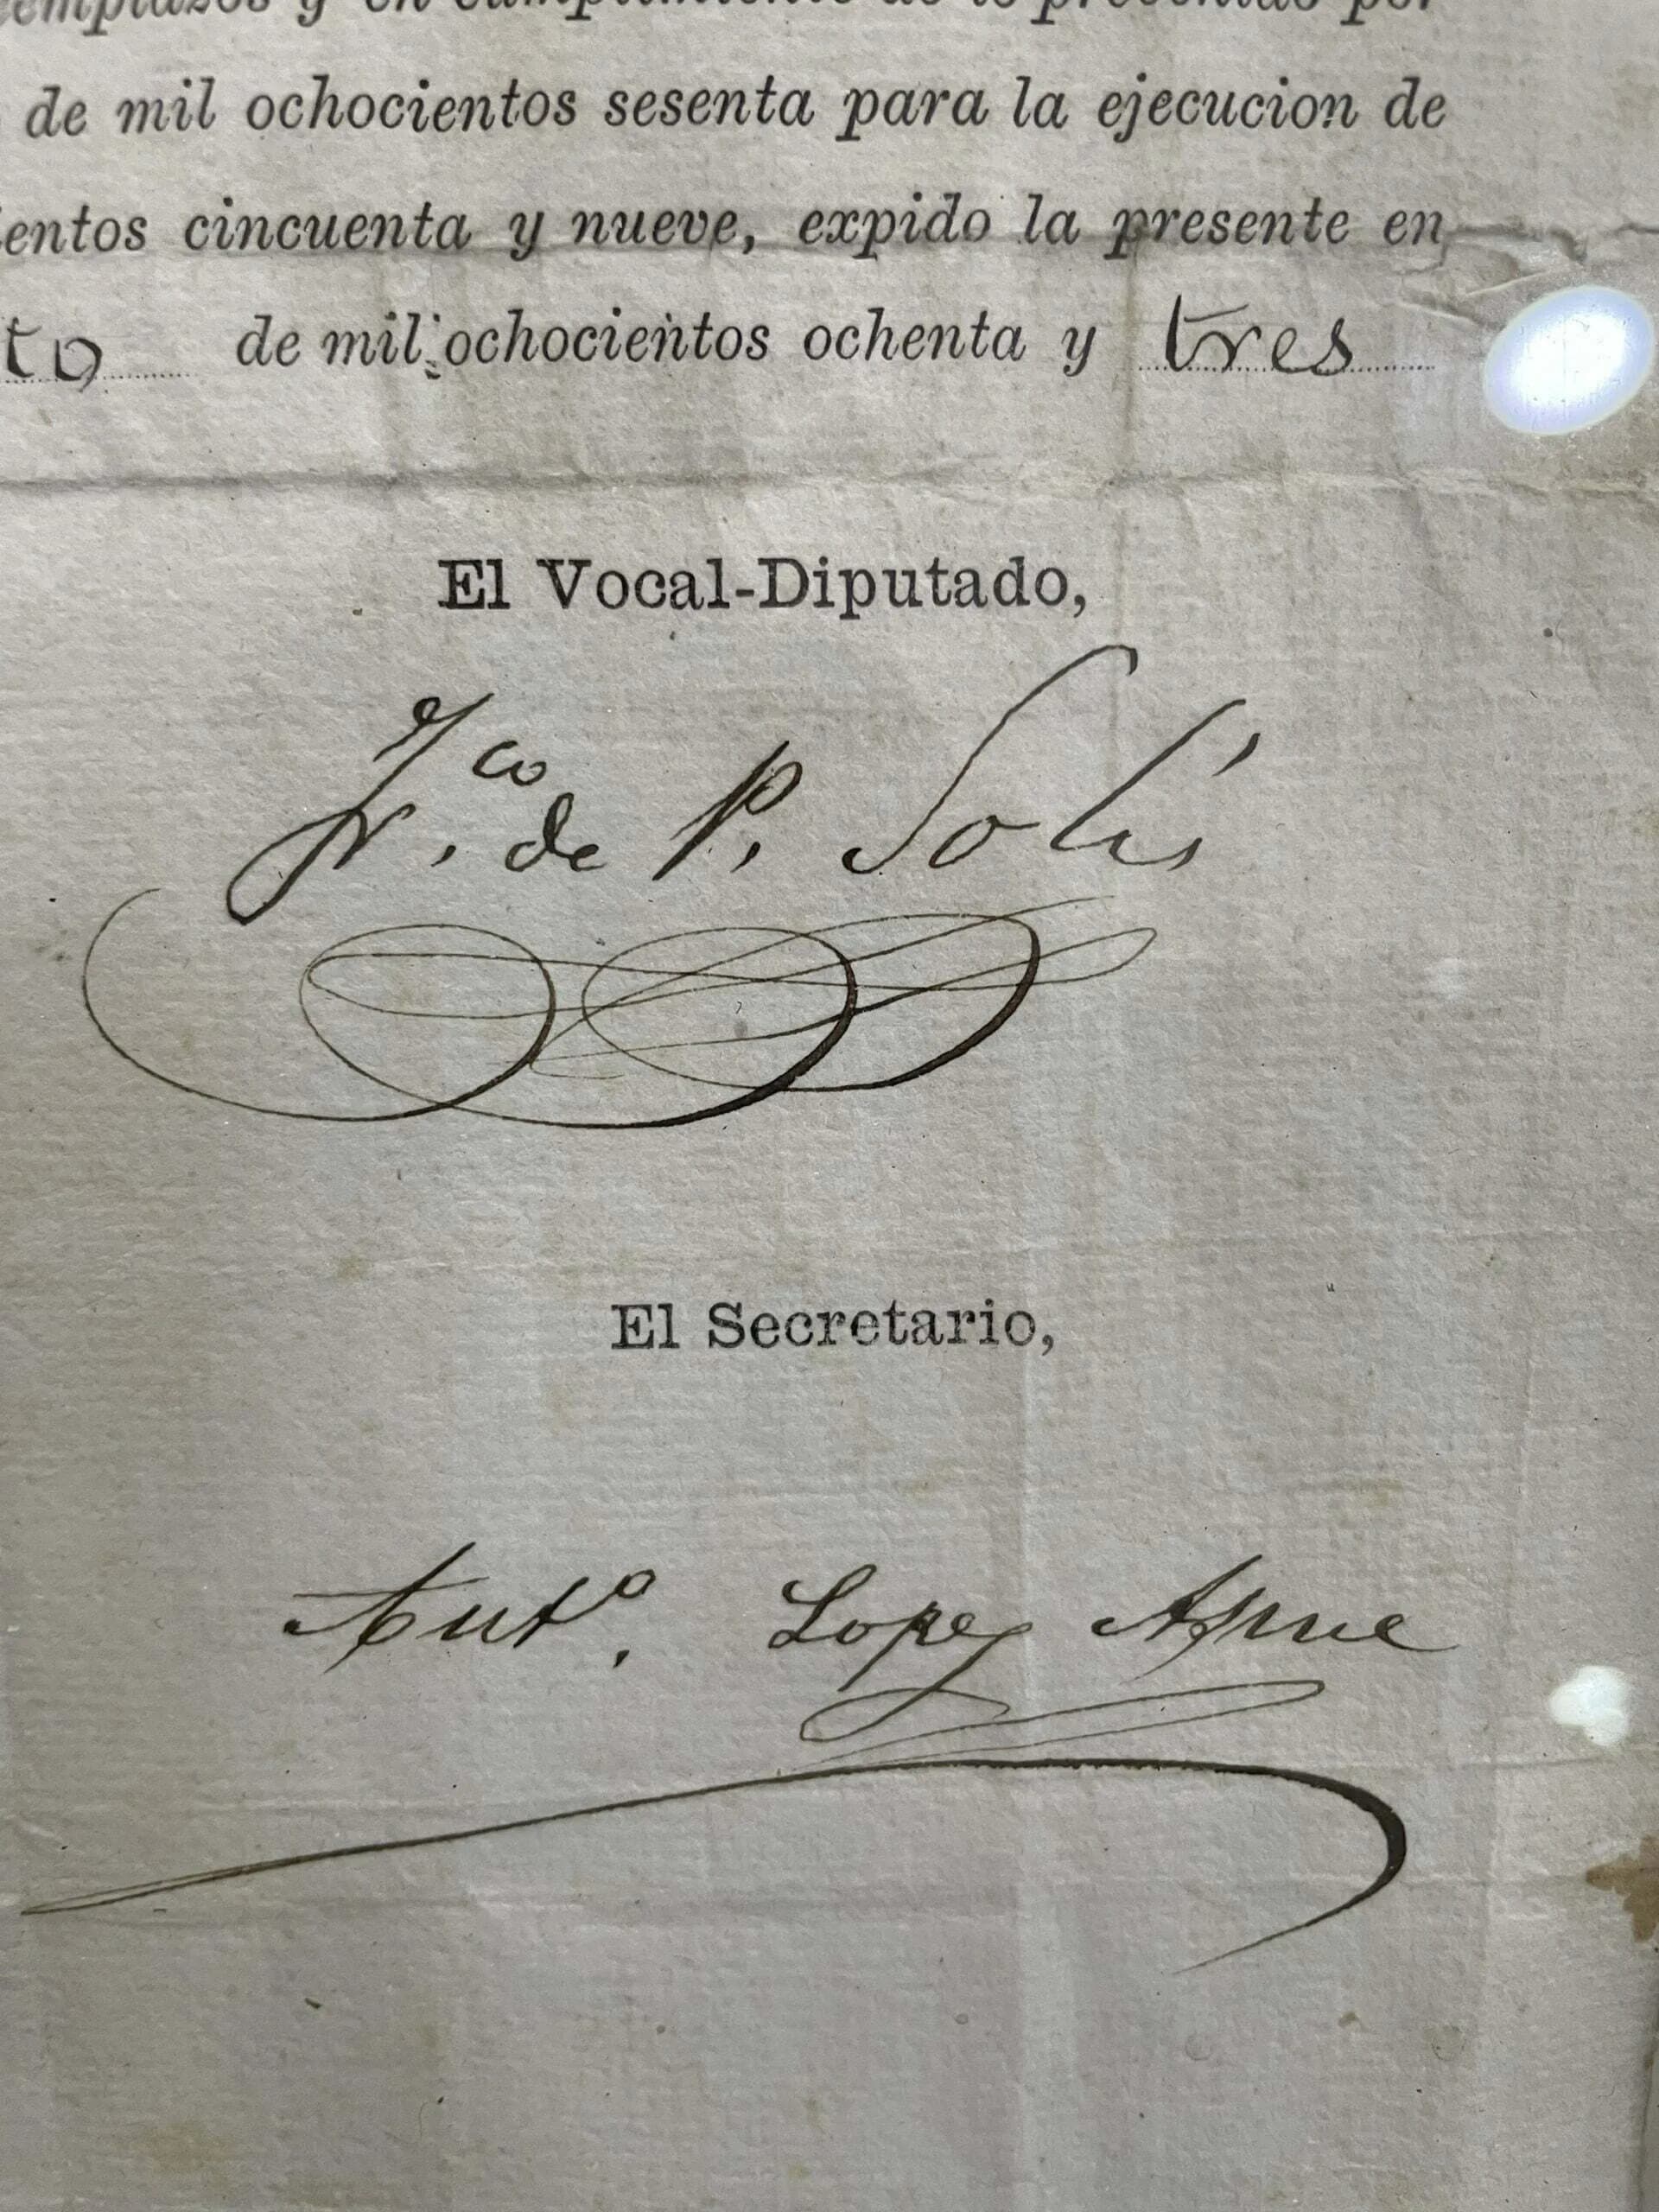 y en cumplimiento de lo prevenido por
de mil ochocientos sesenta para la ejecucion de
ientos cincuenta y nueve, expido la presente en
to de mil ochocientos ochenta y tres
El Vocal-Diputado,
Fr.co de P. Solís
El Secretario,
Ant.o Lopez